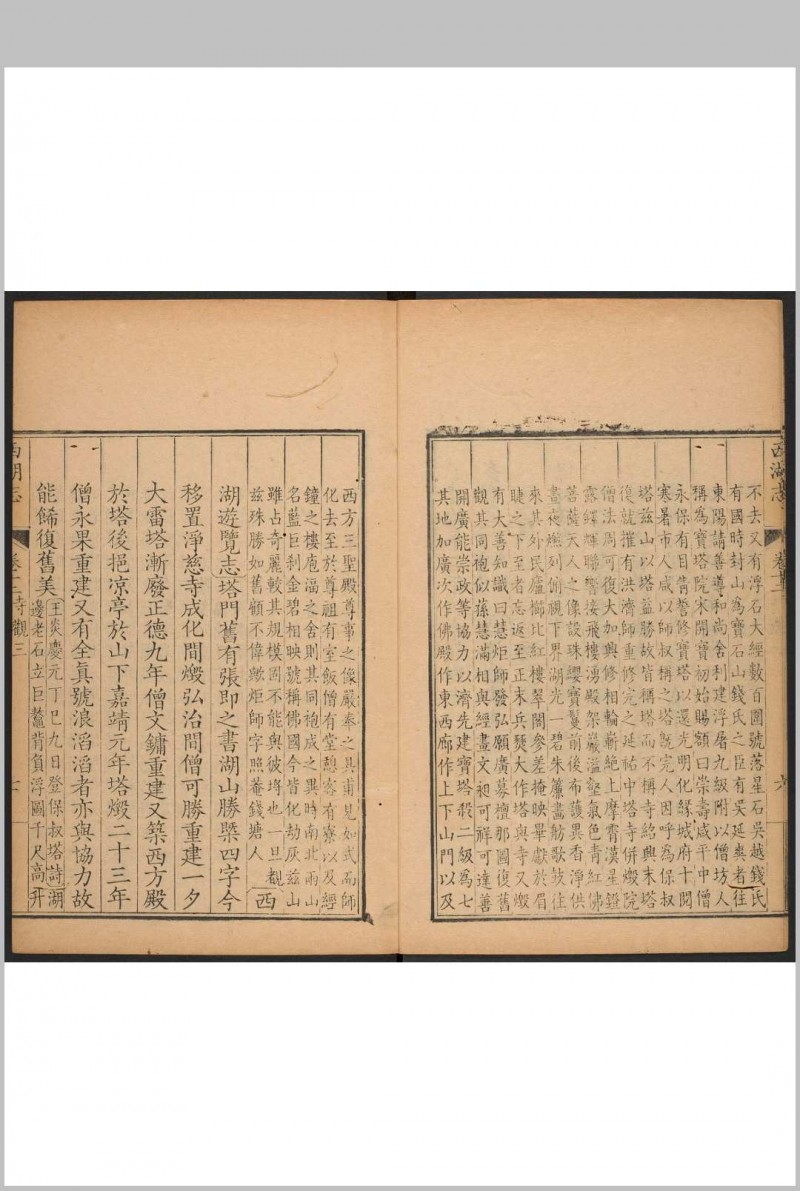 西湖志
卷十二
六
不去又有浮石大經數百圍號落星石吳越錢氏
有國時封山為寶石山錢氏之臣有吳延爽者往
東陽請善導和尚舍利建浮屠九級附以僧坊人
稱為寶塔院宋開寶初始賜額曰崇壽咸平中僧
永保有目眚誓修寶塔以還光明化緣城府十閱
寒暑市人咸以師叔稱之塔既完人因呼為保叔
塔茲山以塔益勝故皆稱塔而不稱寺紹興末塔
復就摧有洪濟師重修完之延祐中塔寺併燬院
僧法周可復大加興修相輪嶄絕上摩霄漢星鐙
露鐸輝聯響接飛樓湧殿架巖溢壑氣色青紅佛
菩薩天人之像設珠纓寶鬘前後布護異香淨供
晝夜俯視下界湖光一碧朱簾畫舫歌鼓往
來其外民廬櫛比紅樓翠閣參差掩映畢獻於眉
睫之下至者忘返至正末兵燹大作塔與寺又燬
有大善知識曰慧炬師發弘願廣募檀那圖復舊
觀其同袍似蓀慧滿相與經畫文祖可祥可達善
開廣能崇政等協力以濟先建寶塔殺二級為七
其地加廣次作佛殿作東西廊作上下山門以及
西方三聖殿尊事之像嚴奉之具甫見如式而師
化去至於尊祖有室飯僧有堂憩客有寮以及經
鐘之樓庖湢之舍則其同袍成之異時南北兩山
名藍巨剎金碧相映號稱佛國今皆化劫灰茲山
雖占奇麗較其規模固不能與彼埒也一旦觀
茲殊勝如舊顧不偉歟炬師字照菴錢塘人 西
湖遊覽志塔門舊有張即之書湖山勝槩四字今
移置淨慈寺成化間燬弘治間僧可勝重建一夕
大雷塔漸廢正德九年僧文鏞重建又築西方殿
於塔後挹凉亭於山下嘉靖元年塔燬二十三年
僧永果重建又有全眞號浪滔滔者亦與協力故
能餙復舊美王炎慶元丁巳九日登保叔塔詩湖
邊老石立巨鼇背負浮圖千尺高升
西湖志
卷十二 寺觀三
七